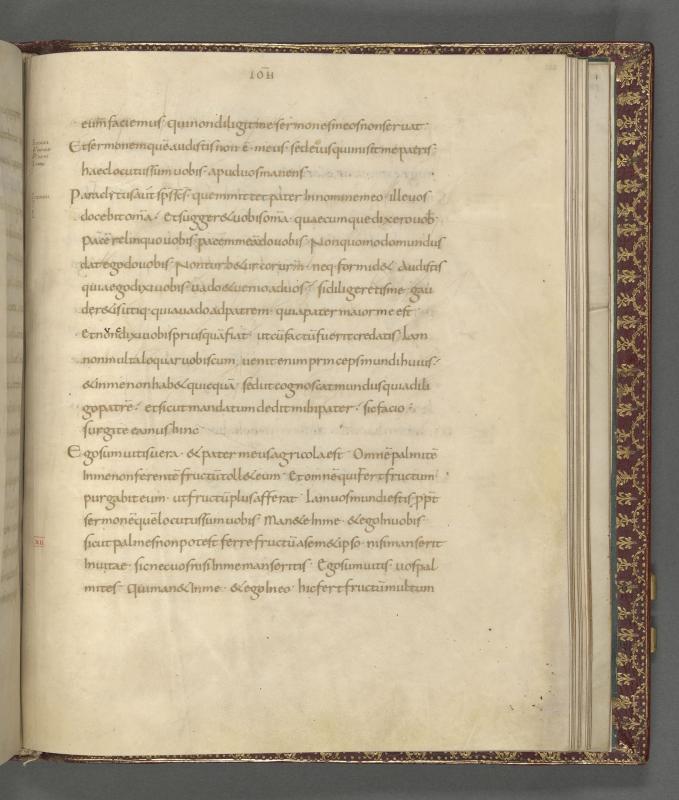 IOH̄
eum faciemus · qui non diligit me sermones meos non seruat ·
Et sermonem quē audistis non ē · meus · sed eius qui misit me patris ·
haec locutus sum uobis · apud uos manens ·
Paraclitus aūt sp̄s sc̄s · quem mittet pater In nomine meo · ille uos
docebit omīa · Et suggeret uobis omīa · quaecumque dixero uob̄ ·
Pacē relinquo uobis · pacem meā do uobis · Non quomodo mundus
dat ego do uobis · Non turbetur cor ur̄m · neq· formidet · Audistis
quia ego dixi uobis · uado & uenio ad uos · si diligeretis me · gau
deretis utiq· quia uado ad patrem · quia pater maior me est ·
Et nunc dixi uobis prius quā fiat · ut cū factū fuerit credatis · Iam
non multa loquar uobiscum · uenit enim princeps mundi huius ·
& in me non habet quicquā · sed ut cognoscat mundus quia dili
go patrē · et sicut mandatum dedit mihi pater · sic facio ·
surgite eamus hinc ·
Ego sum uitis uera · & pater meus agricola est · Omnē palmitē
In me non ferentē fructū tollet eum · Et omnē qui fert fructum
purgabit eum · ut fructū plus afferat · Iam uos mundi estis · ꝓpt̄
sermonē quē locutus sum uobis · Manete In me · & ego In uobis ·
sicut palmes non potest ferre fructū a semetipso · nisi manserit
In uitae · sic nec uos nisi In me manseritis · Ego sum uitis · uos pal
mites · Qui manet In me · & ego In eo · hic fert fructū multum